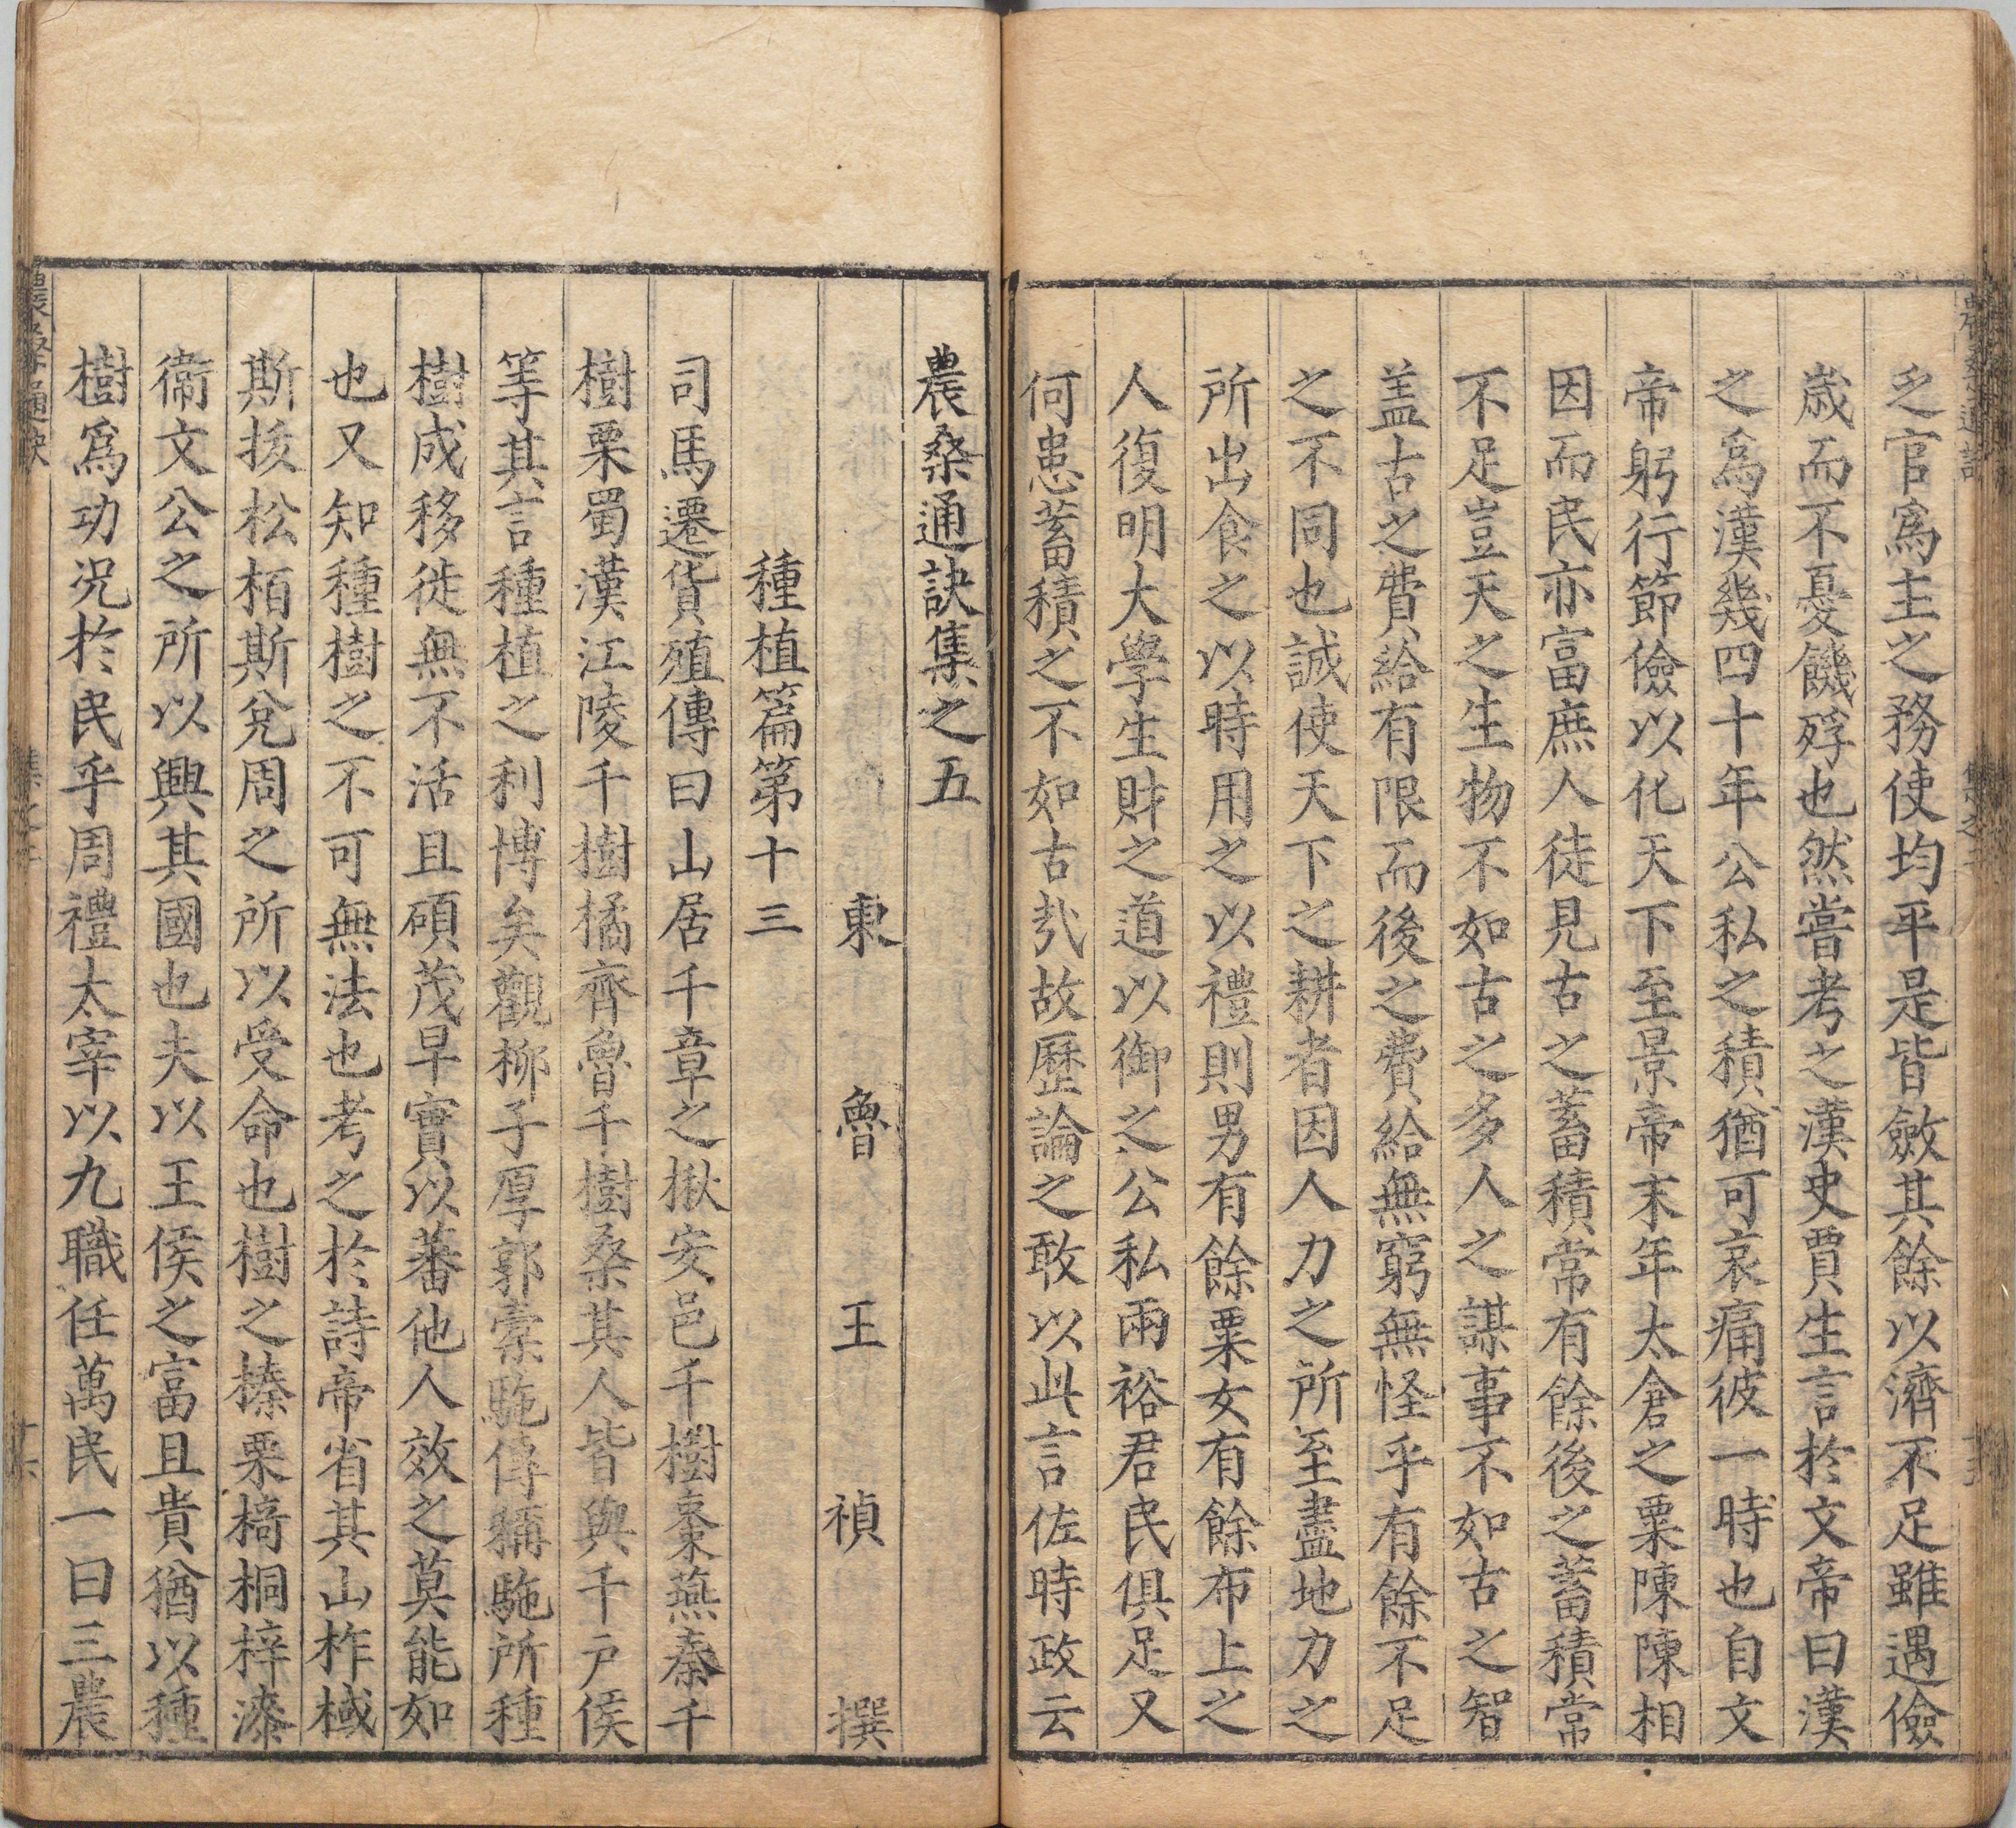 乏官爲主之務使均平是皆斂其餘以濟不足雖遇儉
歲而不憂饑殍也然嘗考之漢史賈生言於文帝曰漢
之爲漢幾四十年公私之積猶可哀痛彼一時也自文
帝躬行節儉以化天下至景帝末年太倉之粟陳陳相
因而民亦富庶人徒見古之蓄積常有餘後之蓄積常
不足豈天之生物不如古之多人之謀事不如古之智
盖古之費給有限而後之費給無窮無怪乎有餘不足
之不同也誠使天下之耕者因人力之所至盡地力之
所出食之以時用之以禮則男有餘粟女有餘布上之
人復明大學生財之道以御之公私兩裕君民俱足又
何患蓄積之不如古㢤故歷論之敢以此言佐時政云
農桑通訣集之五
東魯王禎撰
種植篇第十三
司馬遷貨殖傳曰山居千章之楸安邑千樹棗燕秦千
樹栗蜀漢江陵千樹橘齊魯千樹桑其人皆與千户侯
等其言種植之利博矣觀柳子厚郭橐駞傳稱駞所種
樹成移徙無不活且碩茂早實以蕃他人效之莫能如
也又知種樹之不可無法也考之於詩帝省其山柞棫
斯拔松栢斯兌周之所以受命也樹之榛栗椅桐梓漆
衞文公之所以興其國也夫以王侯之富且貴猶以種
樹爲功况於民乎周禮太宰以九職任萬民一曰三農